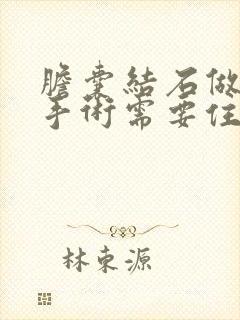 膽囊結石做
手術需要住
林東源